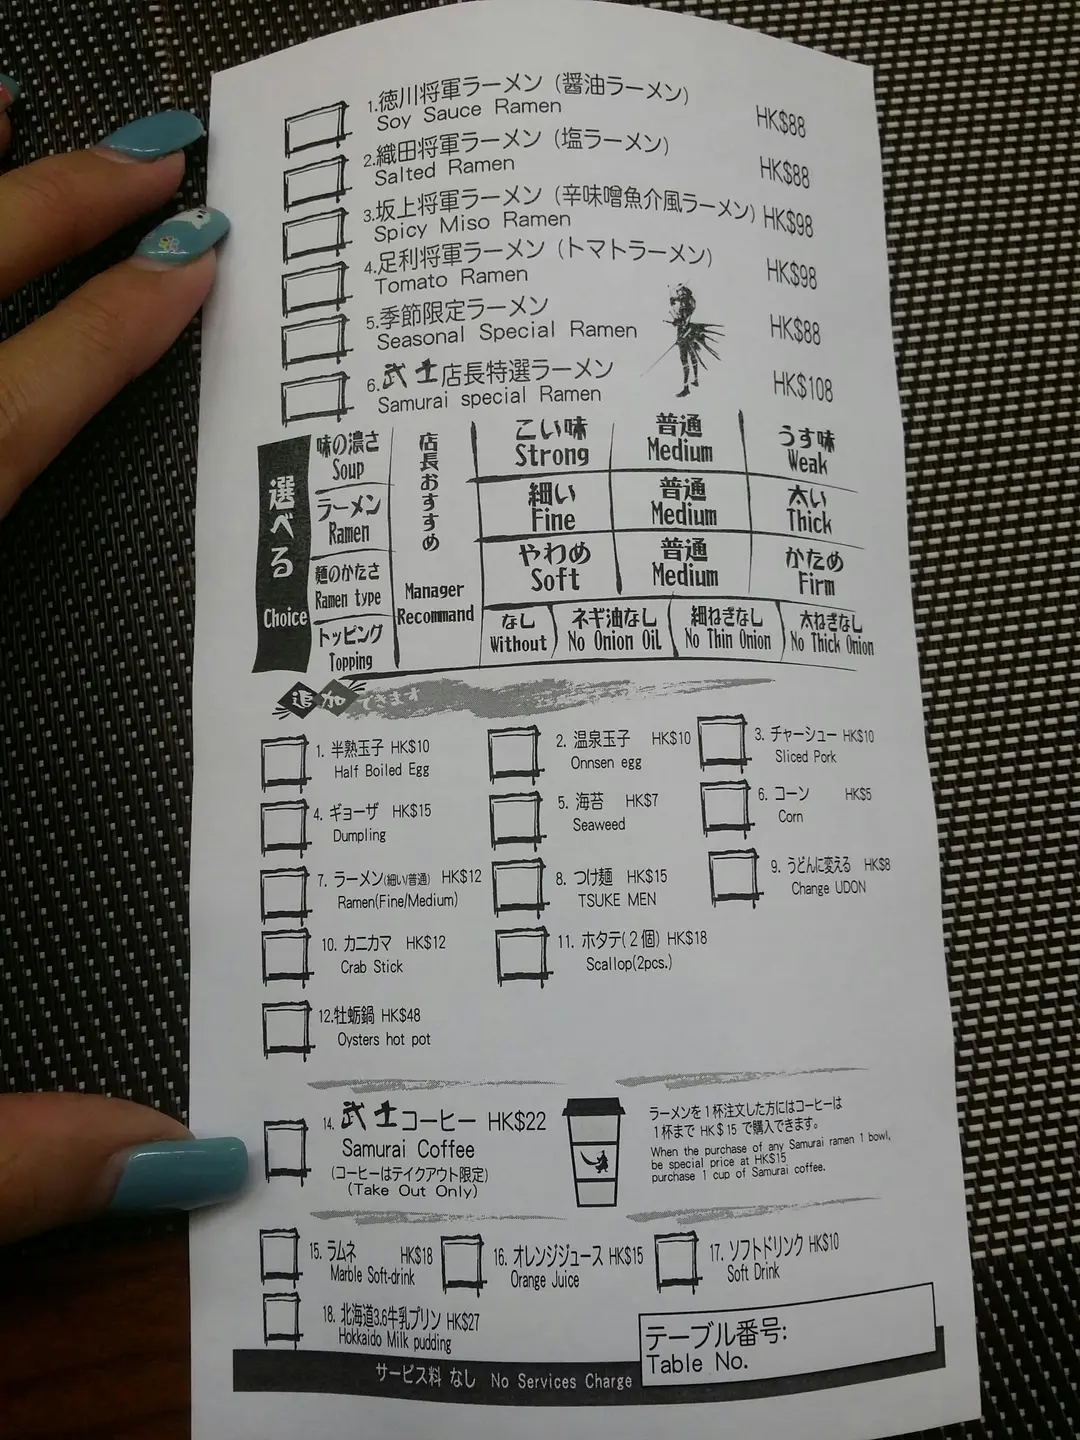 1.徳川将軍ラーメン（醤油ラーメン）
Soy Sauce Ramen
HK$88
2.織田将軍ラーメン（塩ラーメン）
Salted Ramen
HK$88
3.坂上将軍ラーメン（辛味噌魚介風ラーメン）
Spicy Miso Ramen
HK$98
4.足利将軍ラーメン（トマトラーメン）
Tomato Ramen
HK$98
5.季節限定ラーメン
Seasonal Special Ramen
HK$88
6.武士店長特選ラーメン
Samurai special Ramen
HK$108
選べる
Choice
味の濃さ
Soup
ラーメン
Ramen
麺のかたさ
Ramen type
トッピング
Topping
店長おすすめ
Manager
Recommand
こい味
Strong
普通
Medium
うす味
Weak
細い
Fine
普通
Medium
太い
Thick
やわめ
Soft
普通
Medium
かため
Firm
なし
Without
ネギ油なし
No Onion Oil
細ねぎなし
No Thin Onion
太ねぎなし
No Thick Onion
追加できます
1. 半熟玉子 HK$10
Half Boiled Egg
2. 温泉玉子 HK$10
Onnsen egg
3. チャーシュー HK$10
Sliced Pork
4. ギョーザ HK$15
Dumpling
5. 海苔 HK$7
Seaweed
6. コーン HK$5
Corn
7. ラーメン(細い/普通) HK$12
Ramen(Fine/Medium)
8. つけ麺 HK$15
TSUKE MEN
9. うどんに変える HK$8
Change UDON
10. カニカマ HK$12
Crab Stick
11. ホタテ(２個) HK$18
Scallop(2pcs.)
12.牡蛎鍋 HK$48
Oysters hot pot
14. 武士コーヒー HK$22
Samurai Coffee
(コーヒーはテイクアウト限定)
(Take Out Only)
ラーメンを１杯注文した方にはコーヒーは
１杯まで HK$15 で購入できます。
When the purchase of any Samurai ramen 1 bowl,
be special price at HK$15
purchase 1 cup of Samurai coffee.
15. ラムネ HK$18
Marble Soft-drink
16. オレンジジュース HK$15
Orange Juice
17. ソフトドリンク HK$10
Soft Drink
18. 北海道3.6牛乳プリン HK$27
Hokkaido Milk pudding
テーブル番号:
Table No.
サービス料 なし No Services Charge